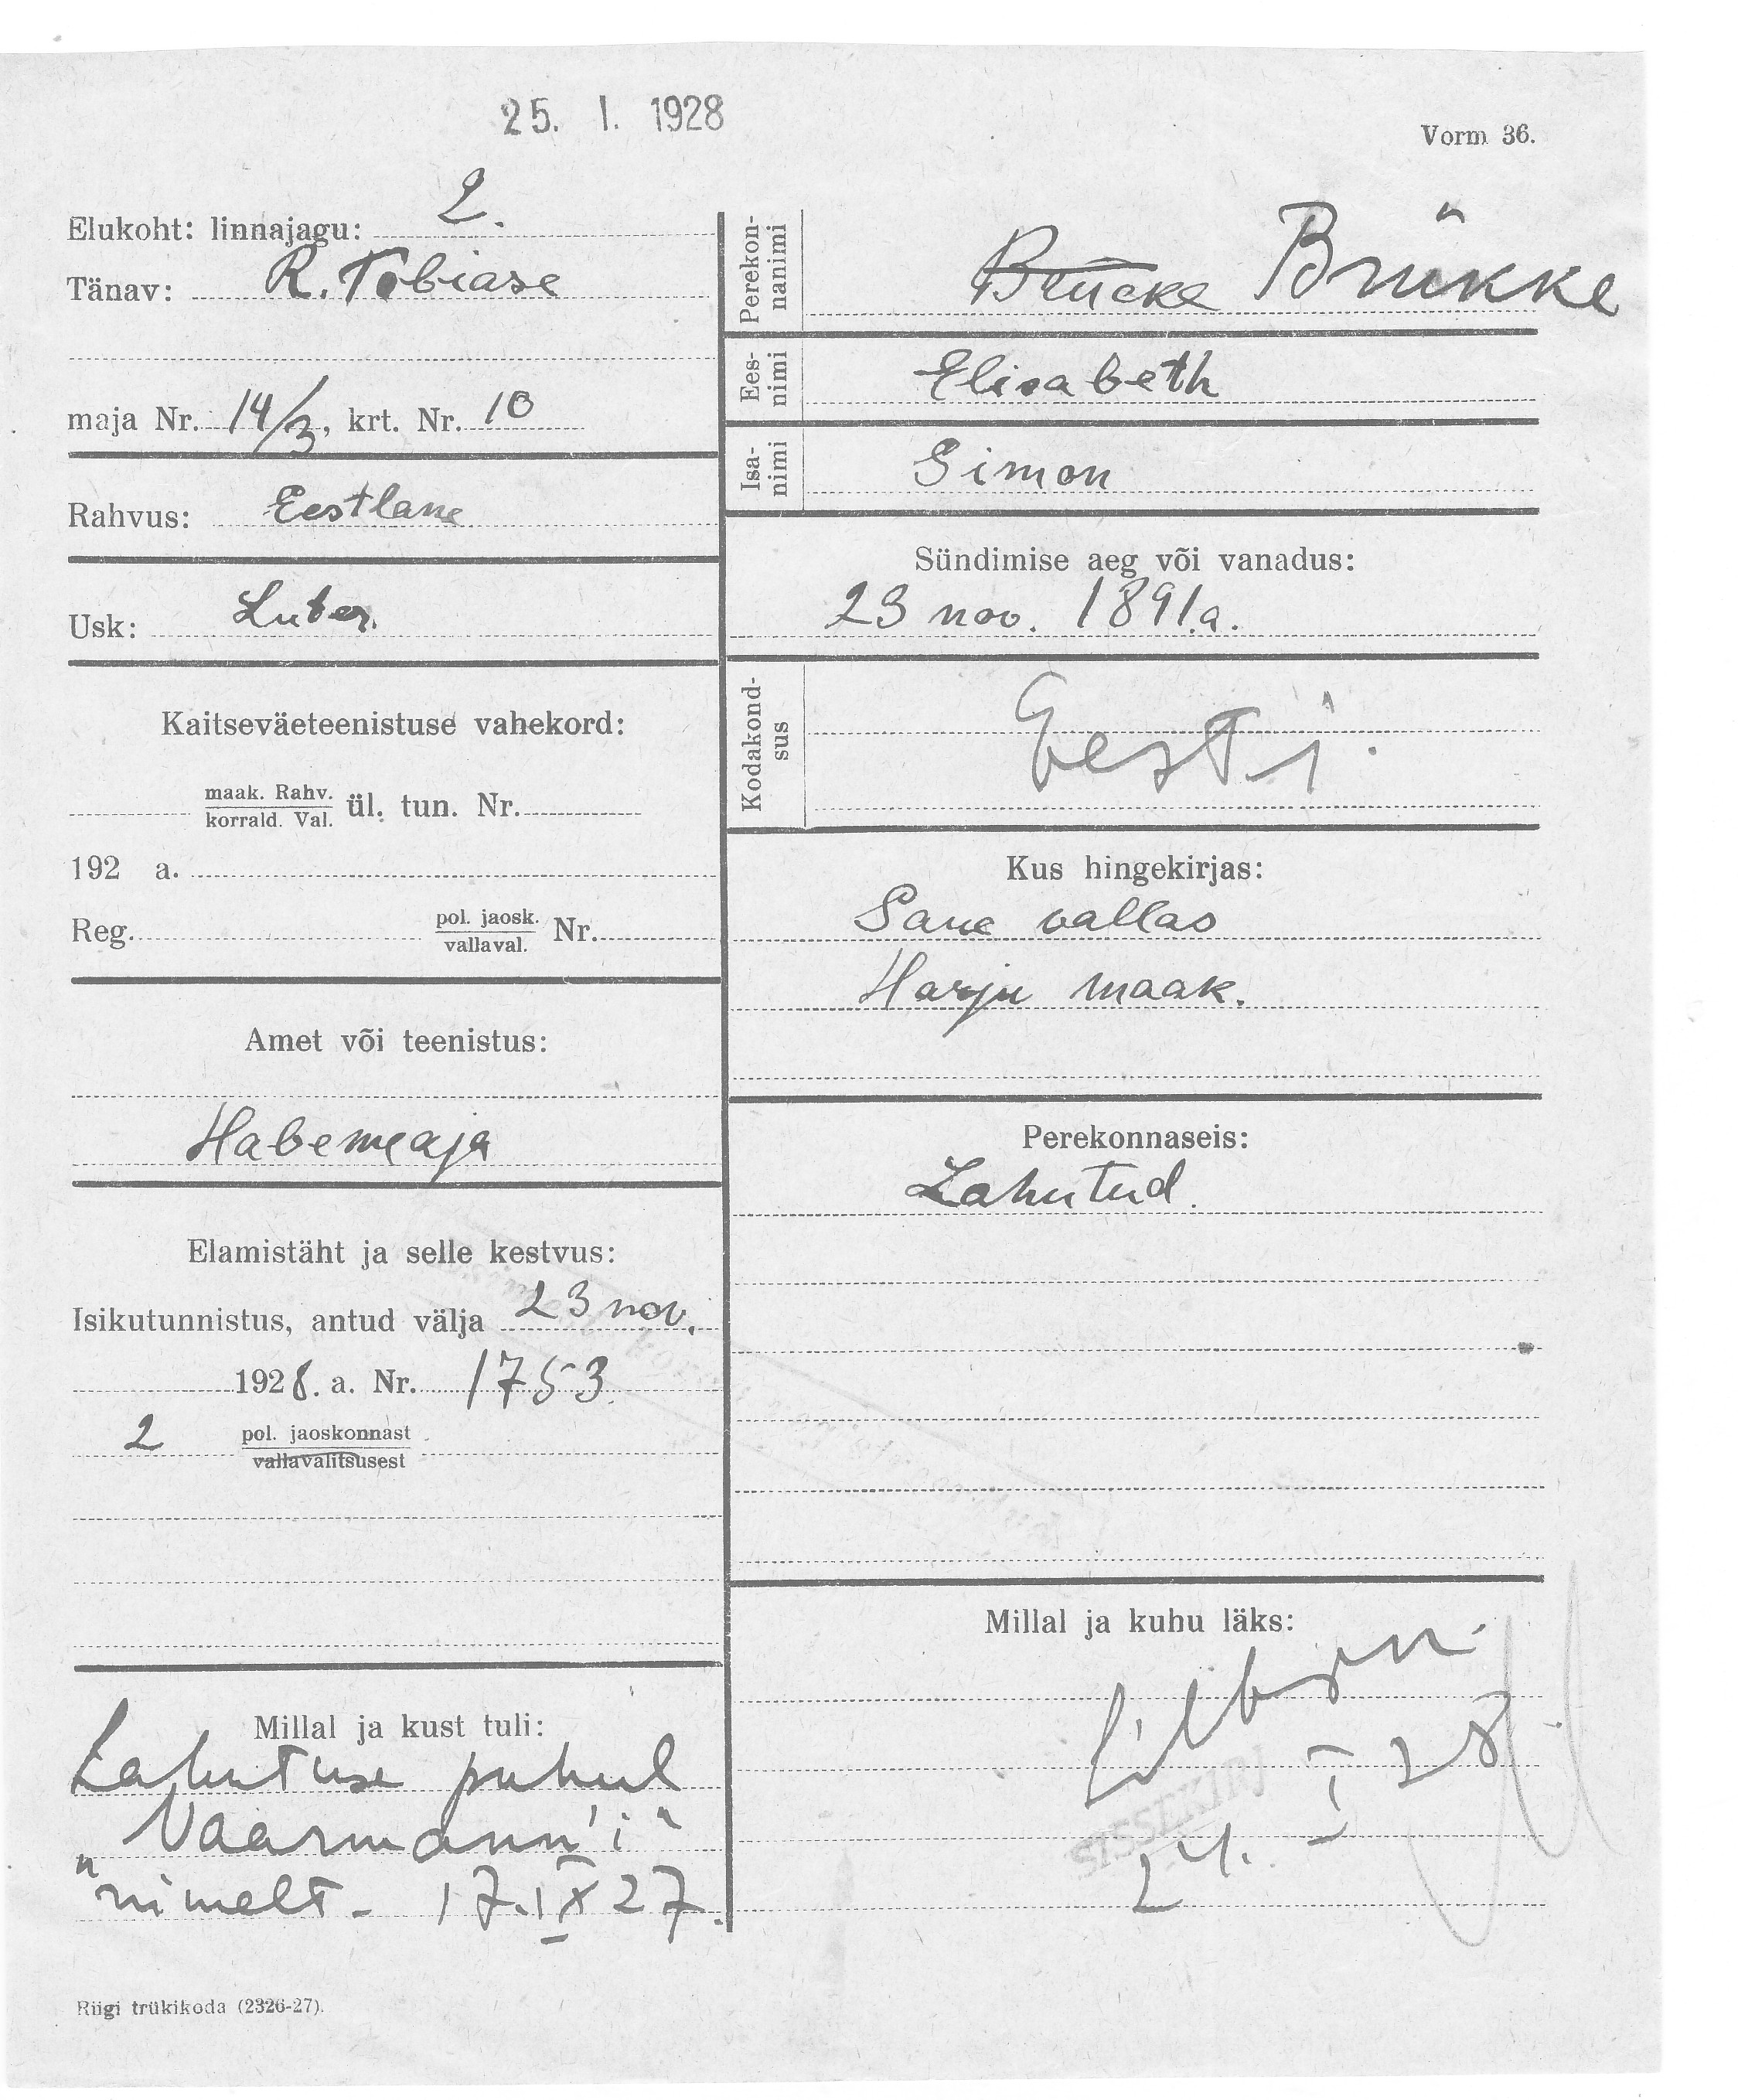 25. I. 1928
Vorm 36.
Elukoht: linnajagu: 2.
Tänav: R. Tobiase
maja Nr. 14/3, krt. Nr. 10
Rahvus: Eestlane
Usk: Luter.
Kaitseväeteenistuse vahekord:
maak. Rahv.
korrald. Val. ül. tun. Nr.
192 a.
Reg. pol. jaosk.
vallaval. Nr.
Amet või teenistus:
Habemeaja
Elamistäht ja selle kestvus:
Isikutunnistus, antud välja 23 nov.
1928. a. Nr. 1753.
2 pol. jaoskonnast
vallavalitsusest
Millal ja kust tuli:
Lahutuse puhul
Vaarmann'i"
"nimelt - 17.IX 27.
Riigi trükikoda (2326-27).
Perekon-
nanimi
Brücke Brükke
Ees-
nimi
Elisabeth
Isa-
nimi
Simon
Sündimise aeg või vanadus:
23 nov. 1891.a.
Kodakond-
sus
Eesti.
Kus hingekirjas:
Saue vallas
Harju maak.
Perekonnaseis:
Lahutud.
Millal ja kuhu läks:
SISSEKIRJ
24. I 28